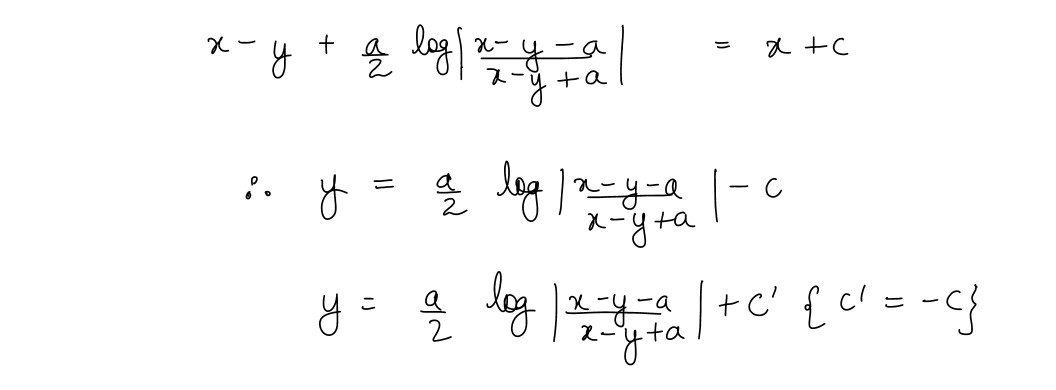 x - y + a/2 log|(x-y-a)/(x-y+a)| = x + c
∴ y = a/2 log|(x-y-a)/(x-y+a)| - c
y = a/2 log|(x-y-a)/(x-y+a)| + c' { c' = -c}